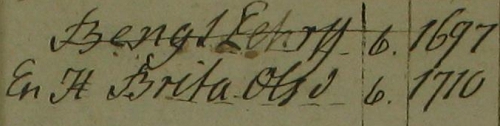 Bengt 6. 1697
En H Brita Olsd 6. 1710